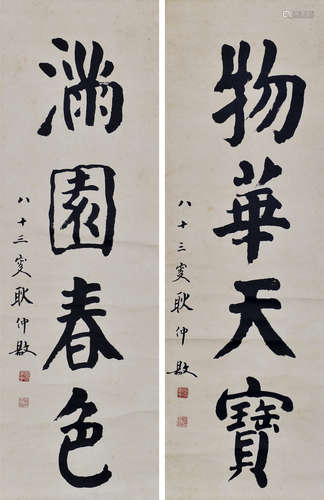 物華天寶
八十三叟耿仲敭
滿園春色
八十三叟耿仲敭